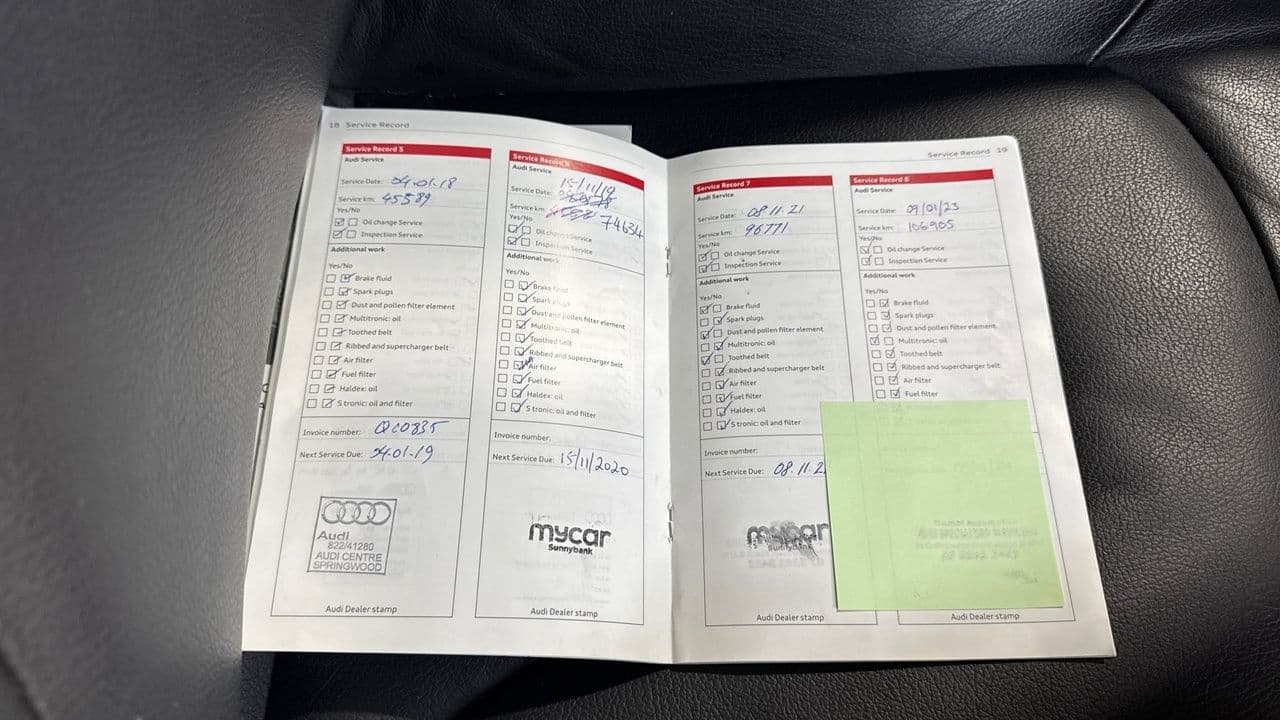 18 Service Record
Service Record 5
Audi Service
Service Date: 04.01.18
Service km: 45589
Yes/No
Oil change Service
Inspection Service
Additional work
Yes/No
Brake fluid
Spark plugs
Dust and pollen filter element
Multitronic: oil
Toothed belt
Ribbed and supercharger belt
Air filter
Fuel filter
Haldex: oil
S tronic: oil and filter
Invoice number: QC0835
Next Service Due: 04.01.19
Audi
822/41280
AUDI CENTRE
SPRINGWOOD
Audi Dealer stamp
Service Record
Audi Service
15/11/19
Service Date:
Service km: 74634
Yes/No
Oil change Service
Inspection Service
Additional work
Yes/No
Brake fluid
Spark plugs
Dust and pollen filter element
Multitronic: oil
Toothed belt
Ribbed and supercharger belt
Air filter
Fuel filter
Haldex: oil
S tronic: oil and filter
Invoice number:
Next Service Due: 15/11/2020
mycar
Sunnybank
Audi Dealer stamp
Service Record 19
Service Record 7
Audi Service
Service Date: 08.11.21
Service km: 96771
Yes/No
Oil change Service
Inspection Service
Additional work
Yes/No
Brake fluid
Spark plugs
Dust and pollen filter element
Multitronic: oil
Toothed belt
Ribbed and supercharger belt
Air filter
Fuel filter
Haldex: oil
S tronic: oil and filter
Invoice number:
Next Service Due: 08.11.2
mycar
Sunnybank
Audi Dealer stamp
Service Record 8
Audi Service
Service Date: 09/01/23
Service km: 106905
Yes/No
Oil change Service
Inspection Service
Additional work
Yes/No
Brake fluid
Spark plugs
Dust and pollen filter element
Multitronic: oil
Toothed belt
Ribbed and supercharger belt
Air filter
Fuel filter
Audi Dealer stamp